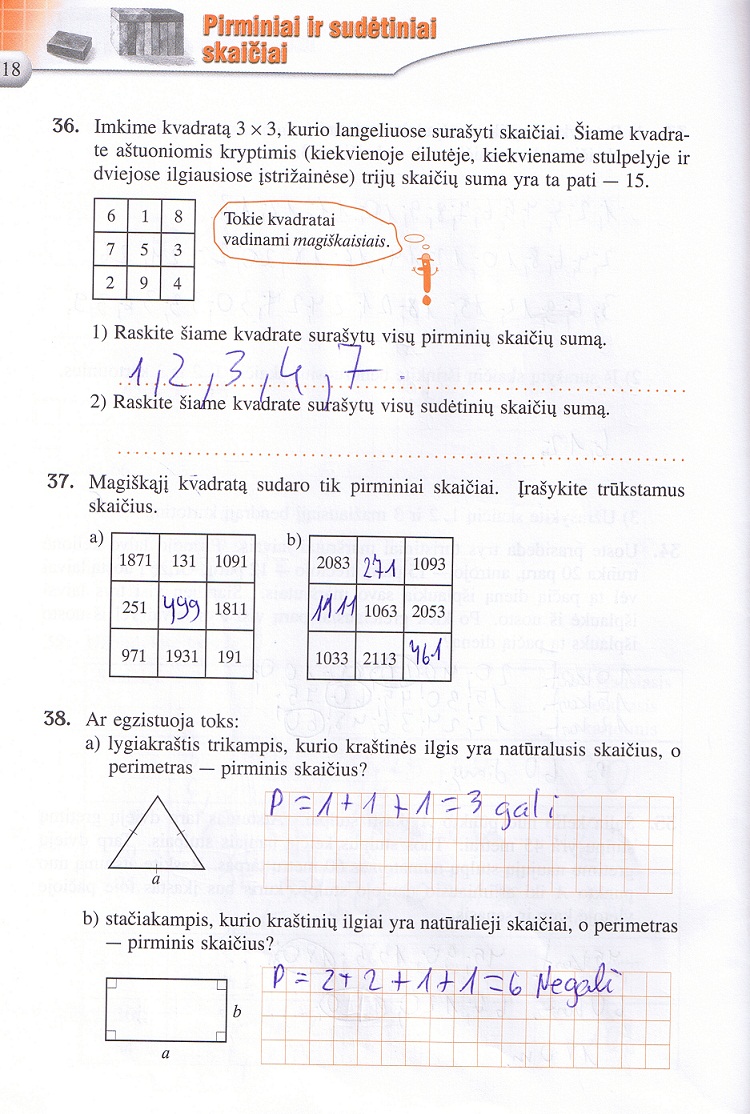 Pirminiai ir sudėtiniai
skaičiai
18
36. Imkime kvadratą 3 × 3, kurio langeliuose surašyti skaičiai. Šiame kvadra-
te aštuoniomis kryptimis (kiekvienoje eilutėje, kiekviename stulpelyje ir
dviejose ilgiausiose įstrižainėse) trijų skaičių suma yra ta pati — 15.
6 1 8
7 5 3
2 9 4
Tokie kvadratai
vadinami magiškaisiais.
1) Raskite šiame kvadrate surašytų visų pirminių skaičių sumą.
1, 2, 3, 4, 7.
2) Raskite šiame kvadrate surašytų visų sudėtinių skaičių sumą.
37. Magiškąjį kvadratą sudaro tik pirminiai skaičiai. Įrašykite trūkstamus
skaičius.
a)
1871 131 1091
251 499 1811
971 1931 191
b)
2083 271 1093
1111 1063 2053
1033 2113 461
38. Ar egzistuoja toks:
a) lygiakraštis trikampis, kurio kraštinės ilgis yra natūralusis skaičius, o
perimetras — pirminis skaičius?
P = 1 + 1 + 1 = 3 gali
a
b) stačiakampis, kurio kraštinių ilgiai yra natūralieji skaičiai, o perimetras
— pirminis skaičius?
P = 2 + 2 + 1 + 1 = 6 Negali
b
a